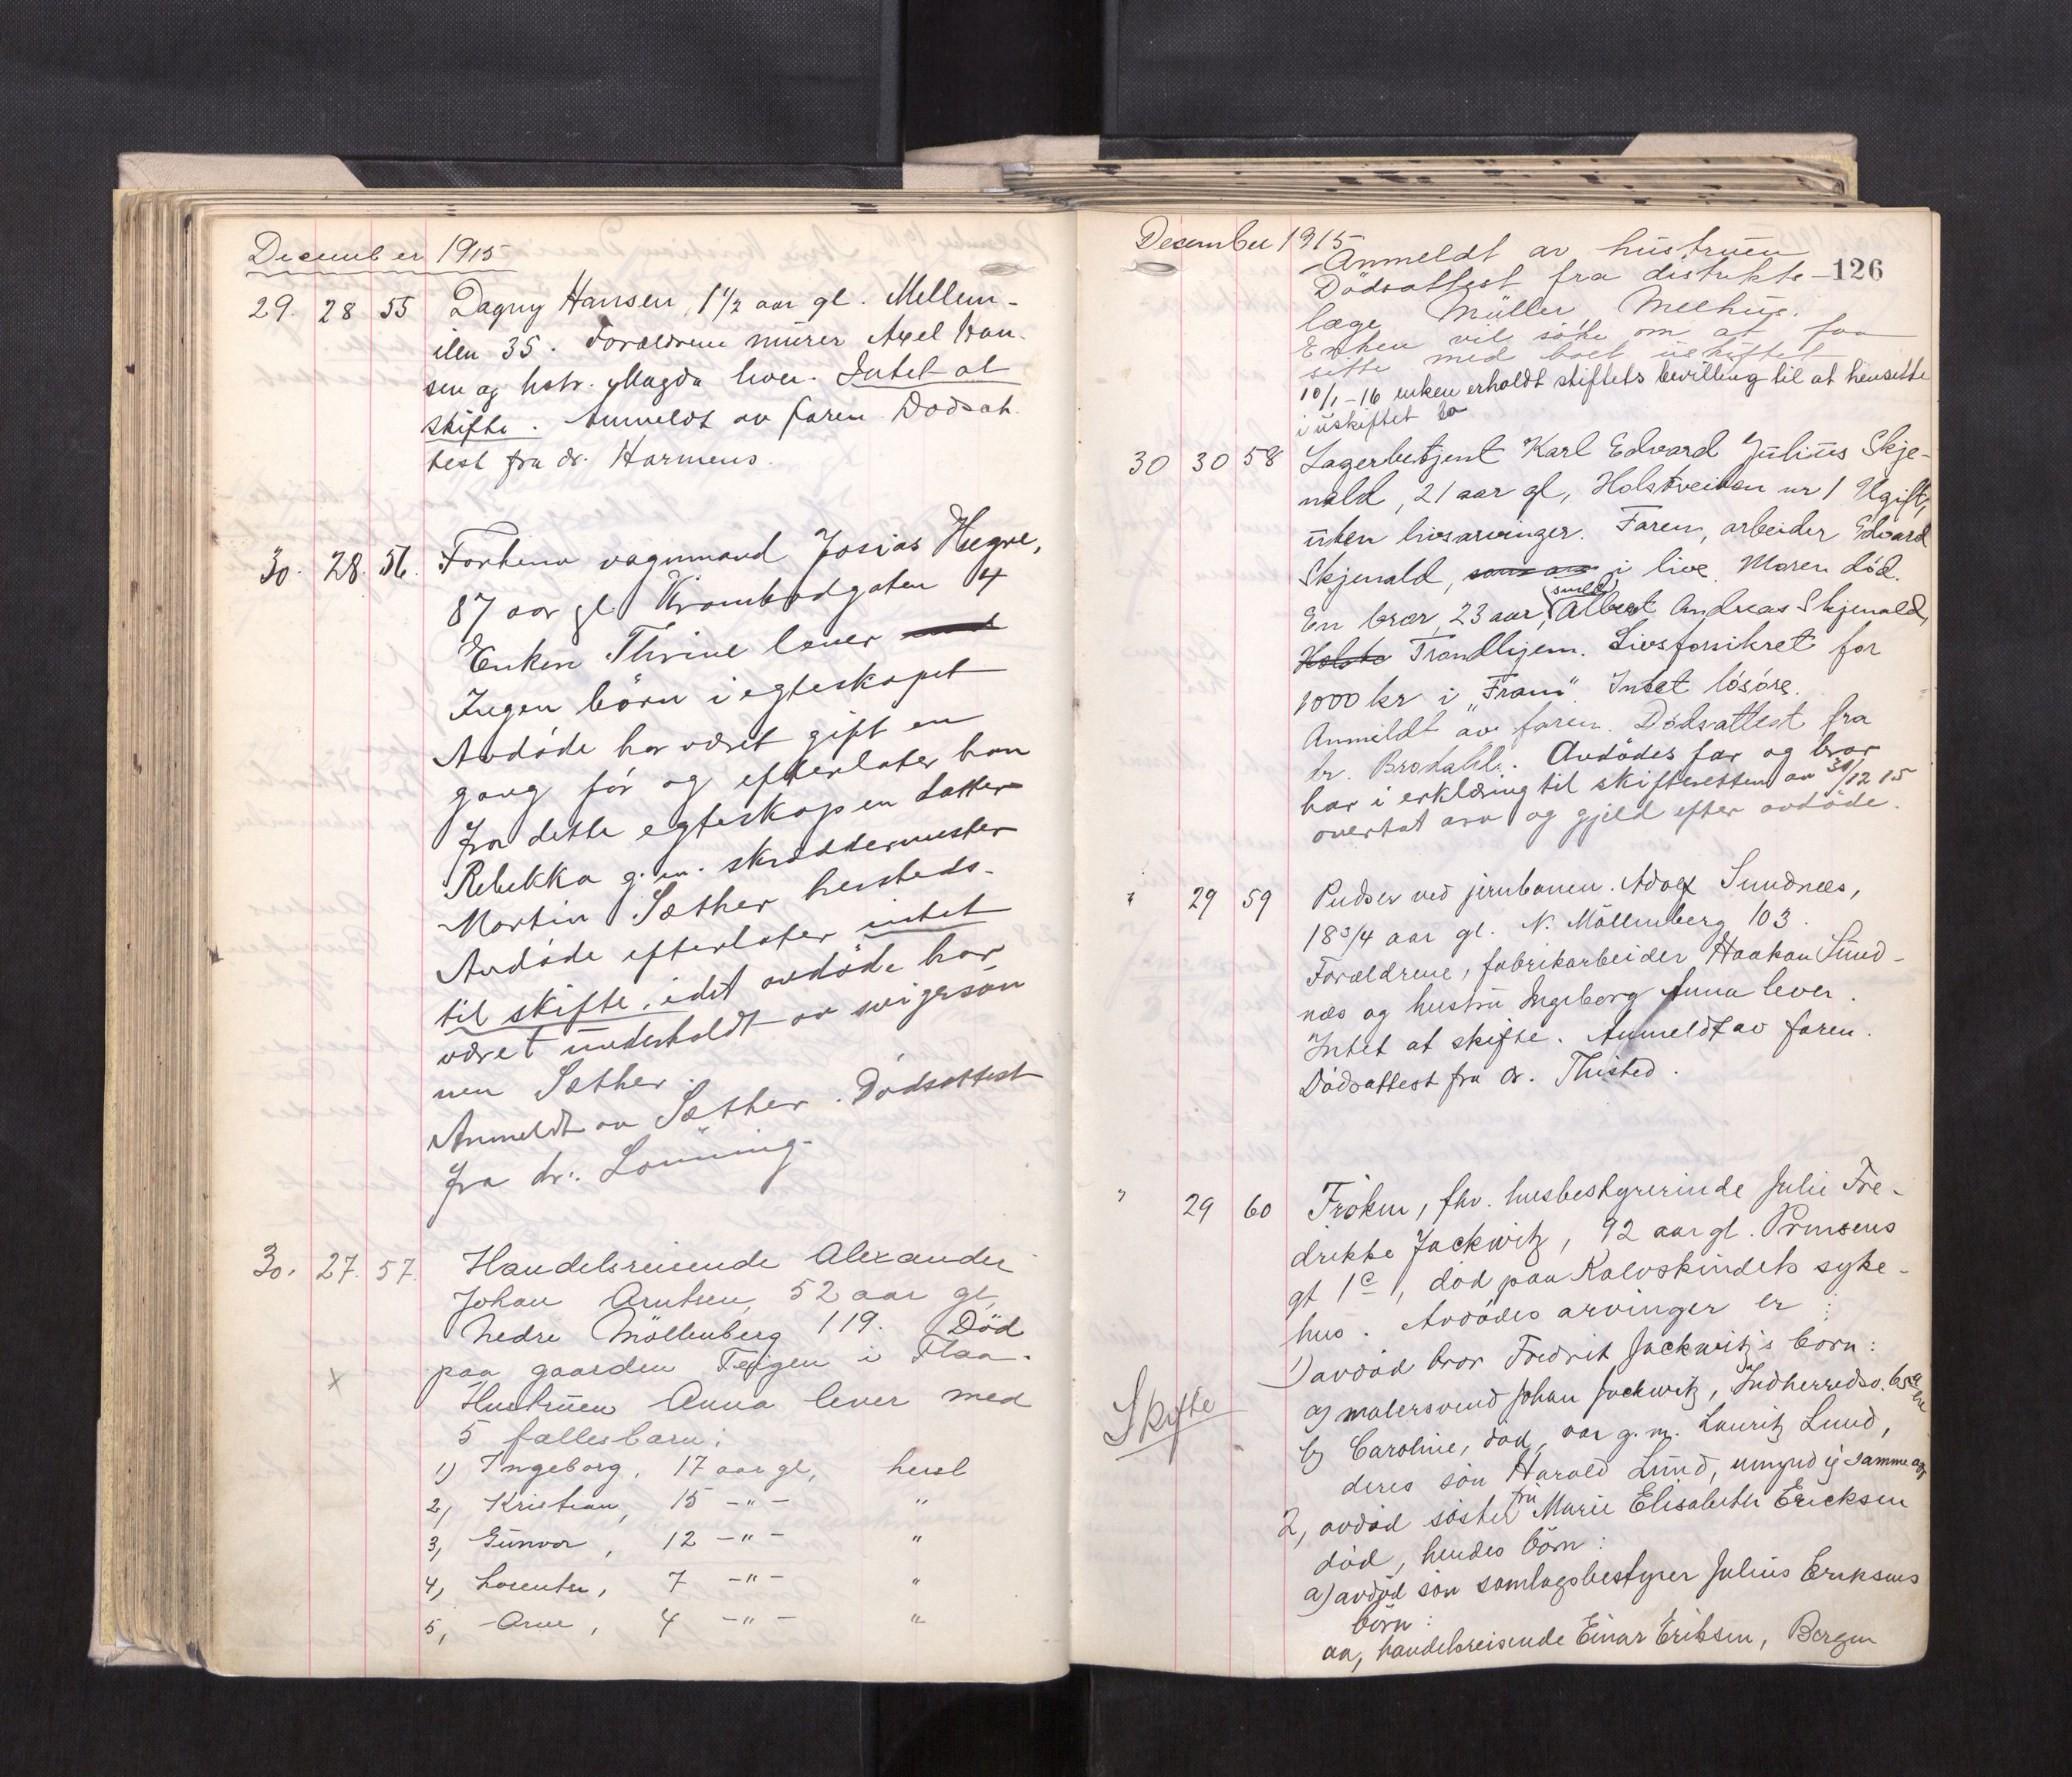 December 1915
29. 28 55 Dagny Hansen, 1 1/2 aar gl. Mellem-
ilen 35. Forældrene murer Axel Han-
sen og hstr. Magda lever. Intet at
skifte. Anmeldt av faren. Dødsat-
test fra dr. Harmens.
30. 28. 56. Forhenv vognmand Josias Hegre,
87 aar gl Krambodgaten 4
Enken Thrine lever
Ingen børn i egteskapet
Avdøde har været gift en
gang før og efterlater han
fra dette egteskap en datter
Rebekka g.m. skræddermester
Martin Sæther hersteds.
Avdøde efterlater intet
til skifte, idet avdøde har
været underholdt av svigersøn
nen Sæther.
Anmeldt av Sæther. Dødsattest
fra dr. Lønning.
30. 27. 57. Handelsreisende Alexander
Johan Arntsen, 52 aar gl,
Nedre Möllenberg 119. Död
x paa gaarden Teigen i Flaa.
Hustruen Anna lever med
5 fællesbarn:
1) Ingeborg, 17 aar gl, herst
2, Kristian, 15 -"- "
3, Gunvor, 12 -"- "
4, Lorentze, 7 -"- "
5, Arne, 4 -"- "
December 1915
126
Anmeldt av hustruen
Dödsattest fra distrikts-
læge Müller, Melhus.
Enken vil söke om at faa
sitte med boet uskiftet
10/1-16 enken erholdt skiftets bevilling til at hensitte
i uskiftet bo
30 30 58 Lagerbetjent Karl Edvard Julius Skje-
nald, 21 aar gl, Holstveien nr 1 Ugift,
uten livsarvinger. Faren, arbeider Edvard
Skjenald, i live. Moren død.
En bror, 23 aar, (smed) Albert Andreas Skjenald,
Trondhjem. Livsforsikret for
1000 kr i "Fram". Intet løsøre.
Anmeldt av faren. Dødsattest fra
dr. Brodahl. Avdødes far og bror
har i erklæring til skifteretten av 31/12 15
overtat arv og gjeld efter avdøde.
" 29 59 Pudser ved jernbanen. Adolf Sundnæs,
18 3/4 aar gl. N. Möllenberg 103.
Forældrene, fabrikarbeider Haakon Sund-
næs og hustru Ingeborg Anna lever.
Intet at skifte. Anmeldt av faren.
Dödsattest fra dr. Thisted.
" 29 60 Frøken, fhv. husbestyrerinde Julie Fre-
drikke Jackwitz, 92 aar gl. Prinsens
gt 1c, död paa Kalvskindets syke-
hus. Avdödes arvinger er:
1) avdød bror Fredrik Jackwitz's børn:
Skifte
a) malersvend Johan Jackwitz, Indherredsv. 65a
b) Caroline, død, var g.m. Lauritz Lund,
deres søn Harald Lund, umyndig samme
2, avdød søster fru Marie Elisabeth Ericksen
død, hendes børn:
a) avdød søn samlagsbestyrer Julius Eriksens
børn:
aa, handelsreisende Einar Eriksen, Bergen